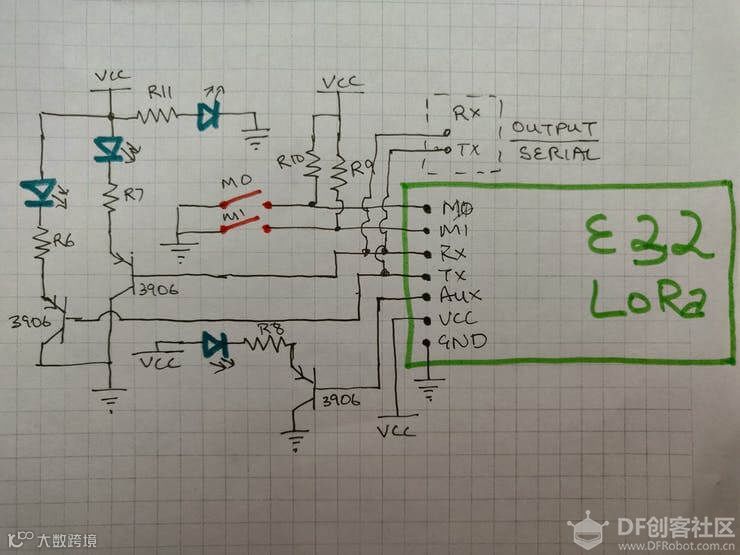 VCC
R11
VCC
Rx
TX
OUTPUT
SERIAL
R10
R9
R7
M0
M1
R6
M0
M1
Rx
Tx
AUX
VCC
GND
E32
LoRa
3906
3906
R8
VCC
3906
VCC
大数跨境
DF创客社区
www.DFRobot.com.cn